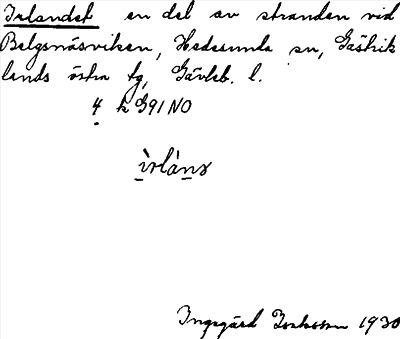 Irlandet en del av stranden vid
Belgsnäsviken, Hedesunda sn, Gästrik
lands östra tg, Gävleb. l.
4 k G91 NO
ìrlàns
Ingegärd Isaksson 1930